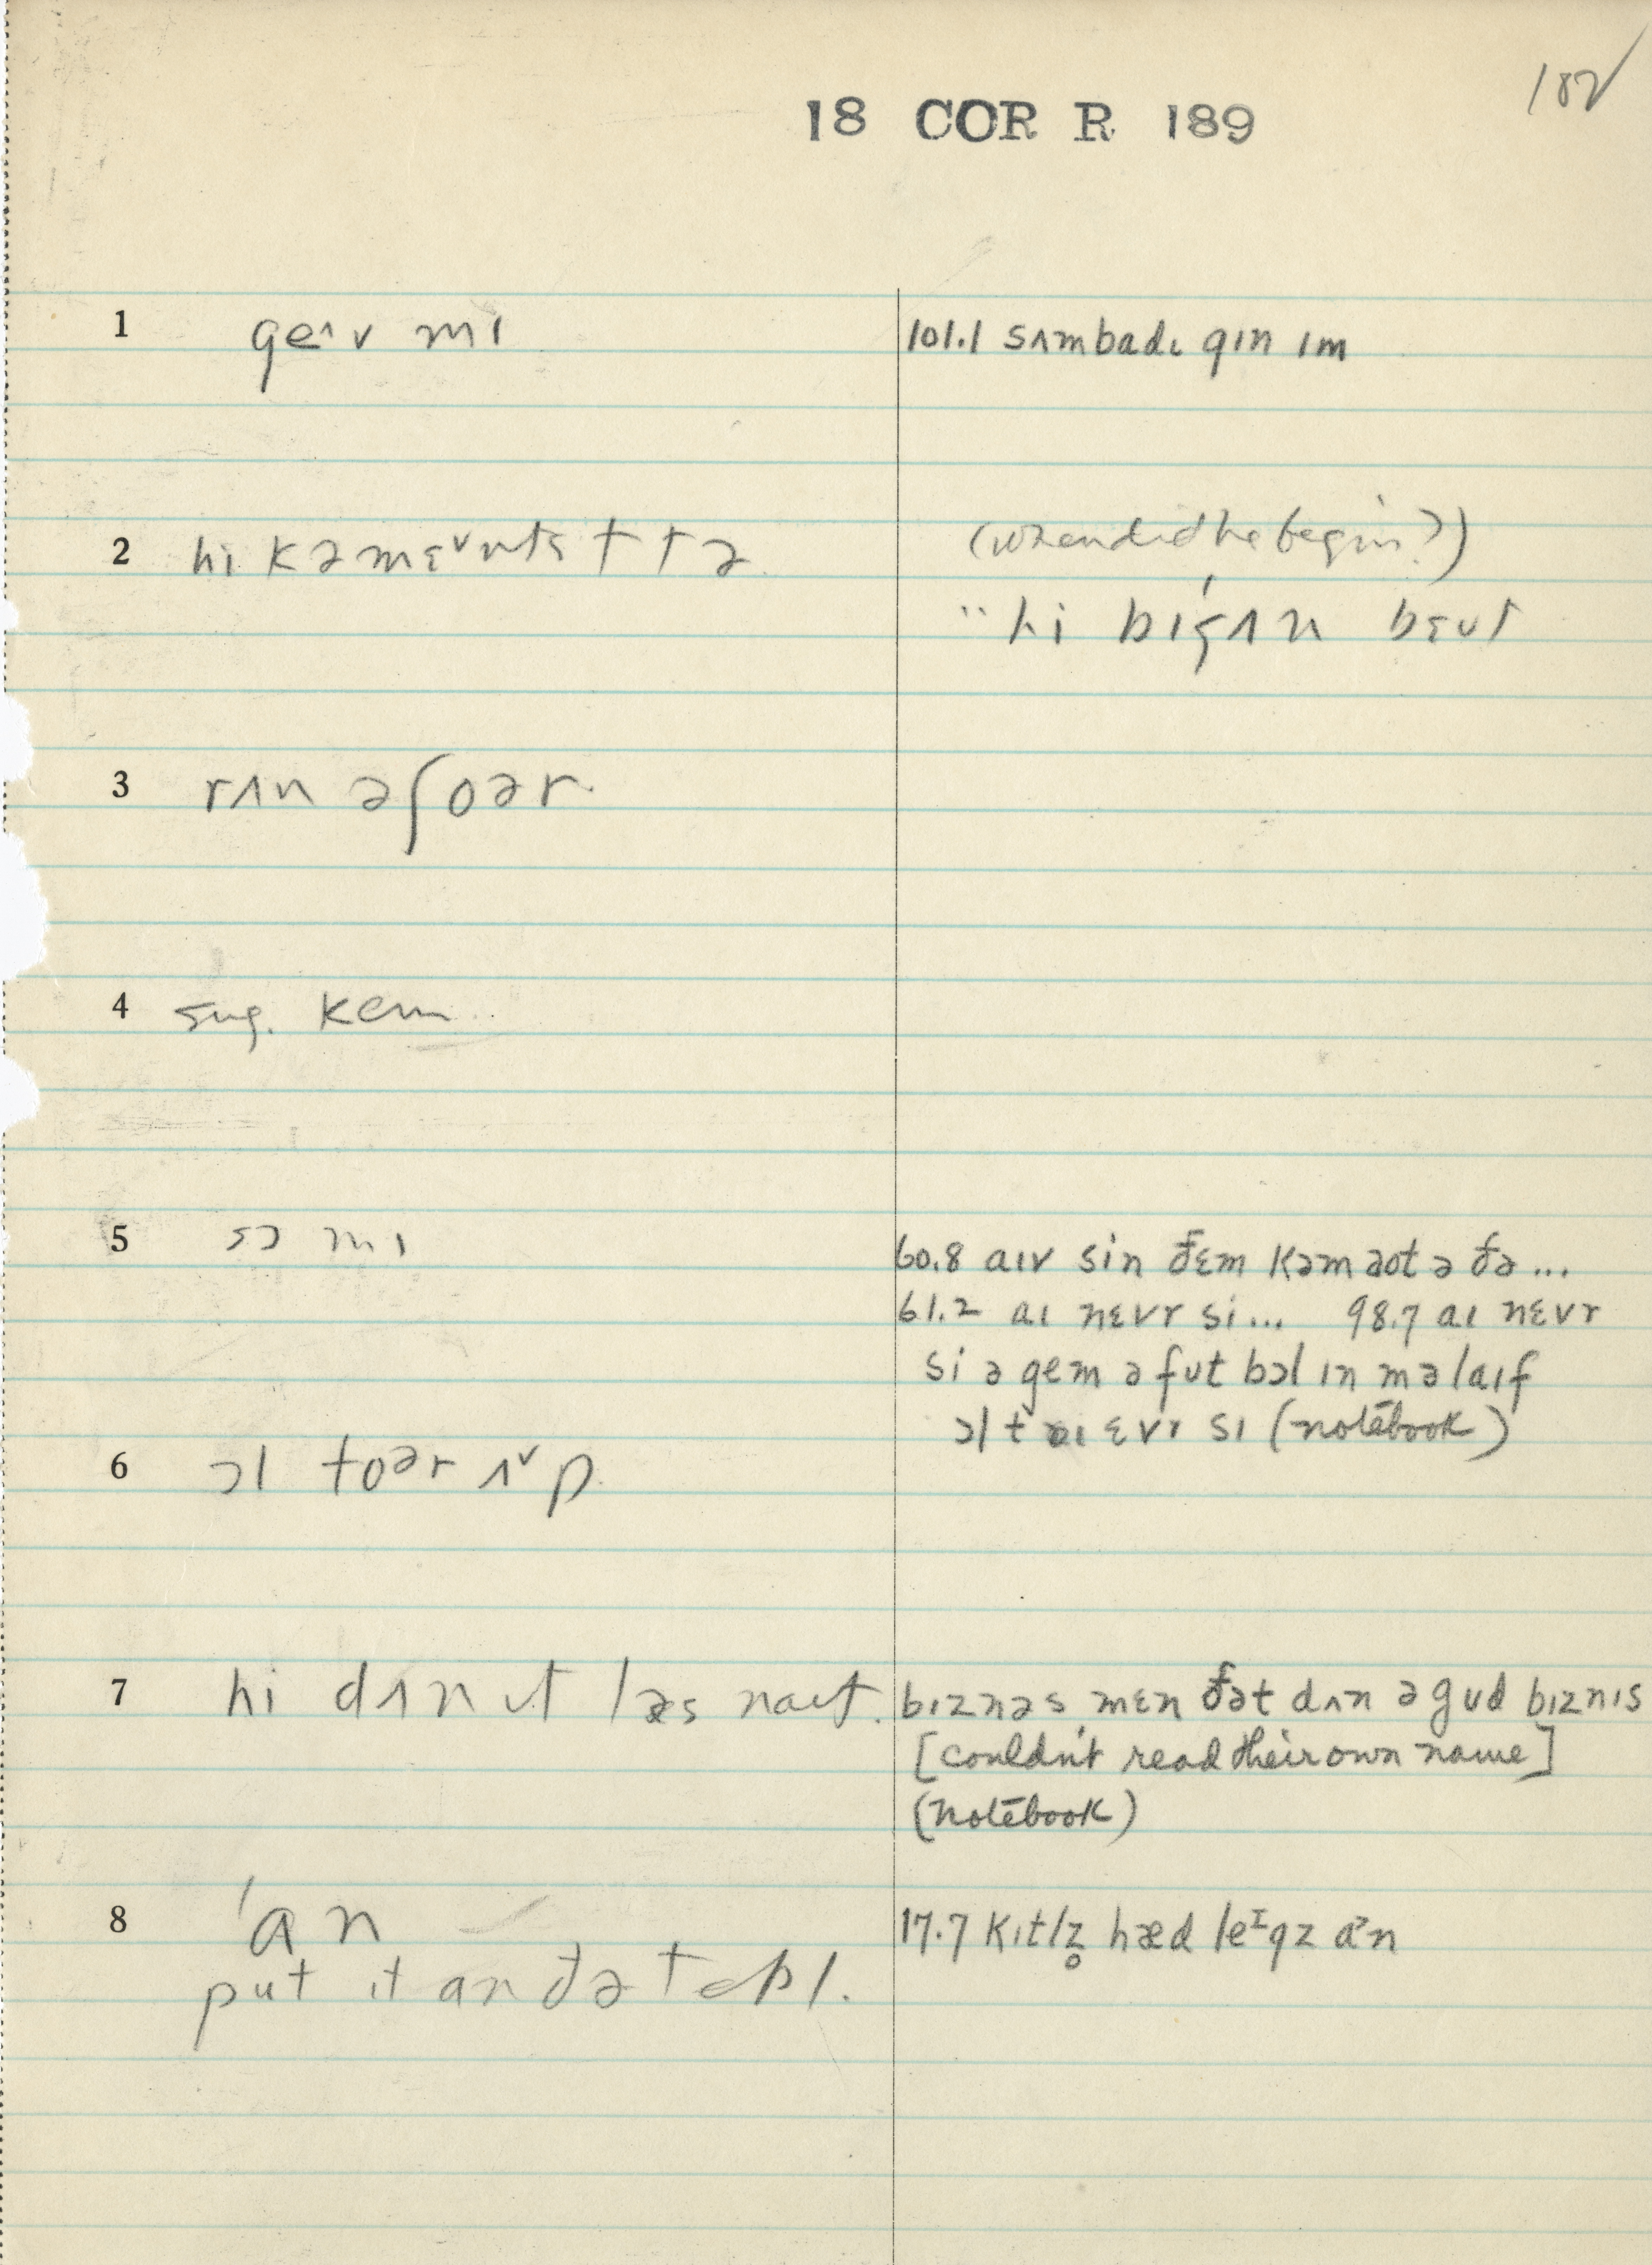 182
18 COR R 189
1 ge^v mɪ
101.1 sʌmbadɪ gɪn ɪm
2 hi
(when did he begin?)
¨hi bɪgʌn bɛut
3 rʌn əʃoər
4 sug. kem
5 sɔ mɪ
60.8 aɪv sin đɛm kəm aot ə đə...
61.2 aɪ nɛvr si... 98.7 aɪ nɛvr
si ə gem ə fut bɔl ɪn mə laɪf
ɔl t aɪ ɛvr sɪ (notebook)
6 ɔl toᵊr ʌᵛp
7 hi dʌn ɪt læs naɪt.
bɪznəs mɛn đət dʌn ə gud bɪznɪs
[couldn't read their own name]
(notebook)
8 'an
17.7 kɪtlz̥ hæd leᴵgz an
put ɪt an đə tebl.